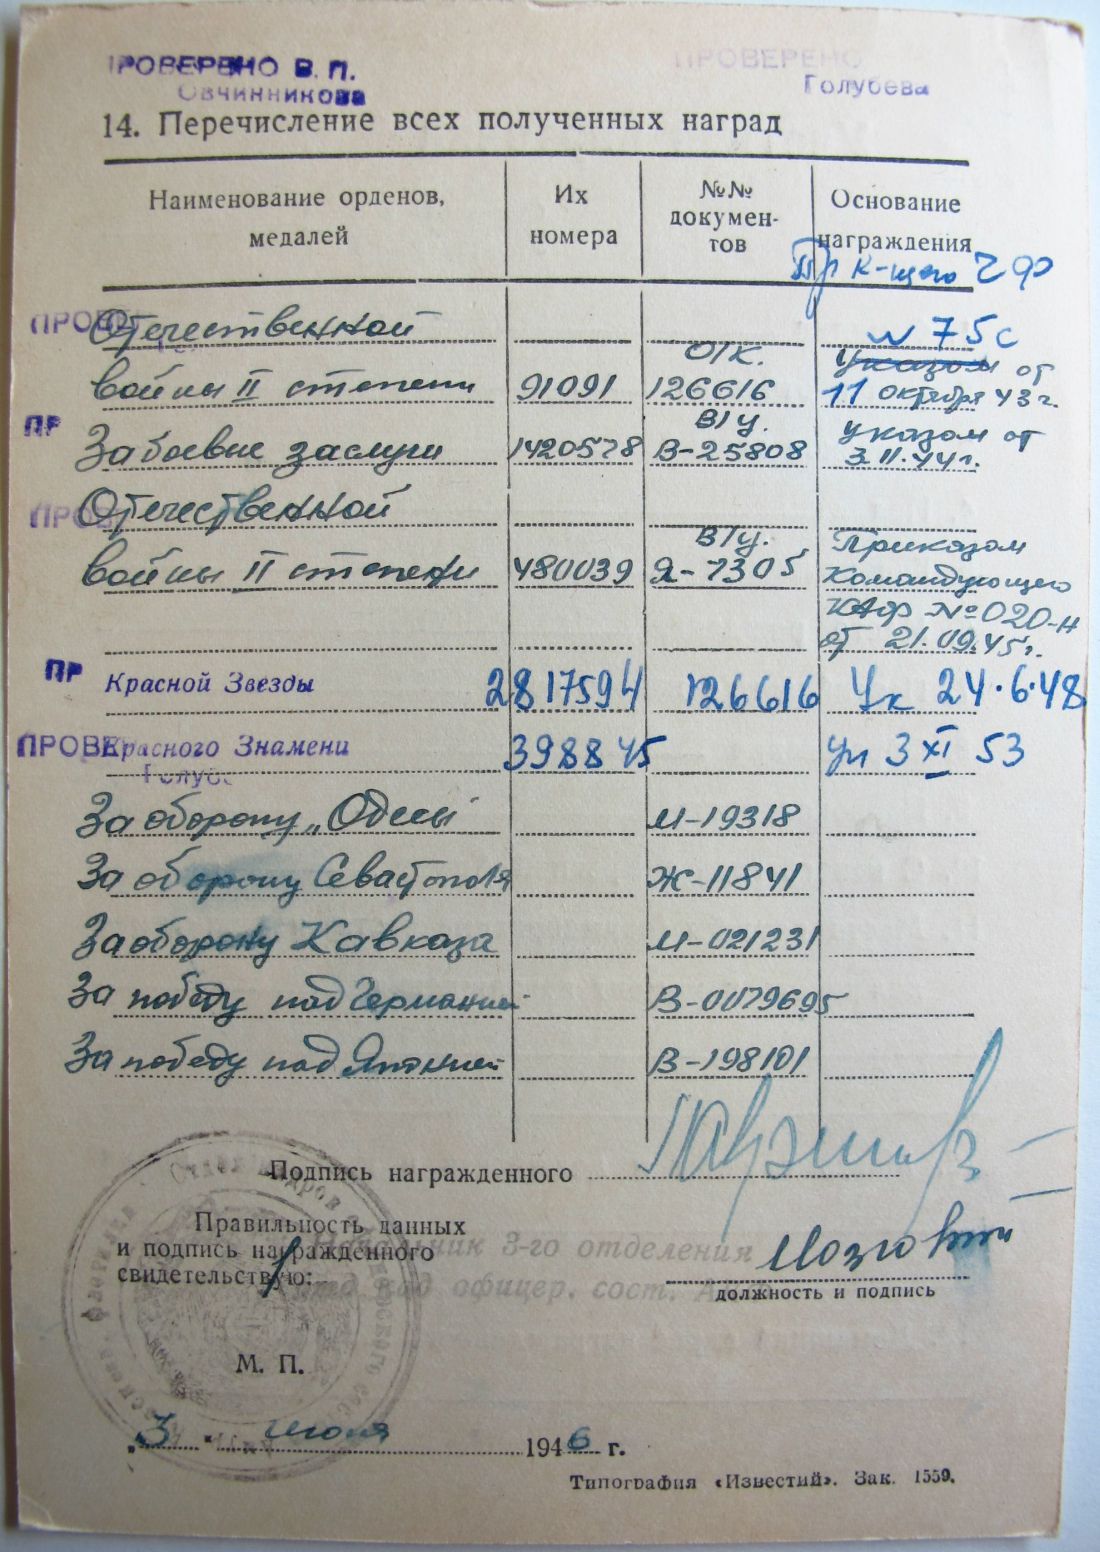 ПРОВЕРЕНО В. П. ПРОВЕРЕНО
Овчинникова Голубева
14. Перечисление всех полученных наград
Наименование орденов, медалей Их номера №№ документов Основание награждения
Пр К-щего ЧФ
ПРОВЕ Отечественной № 75с
О/к. Указом от
войны II степени 91091 126616 11 октября 43 г.
ПР В/у. Указом от
За боевые заслуги 1420578 В-25808 3.II.44 г.
ПРОВ Отечественной
В/у. Приказом
войны II степени 480039 Я-7305 Командующего
КАФ №020-н
от 21.09.45 г.
ПР Красной Звезды 2817594 126616 Ук 24.6.48
ПРОВЕ Красного Знамени 398845 ук 3 XI 53
Голуб
За оборону „Одессы М-19318
За оборону Севастополя Ж-11841
За оборону Кавказа М-021231
За победу над Германией В-0079695
За победу над Японией В-198101
Подпись награжденного
Правильность данных
и подпись награжденного
свидетельствую:
Начальник 3-го отделения
офицер. сост.
должность и подпись
М. П.
„3" июля 1946 г.
Типография «Известий». Зак. 1559.